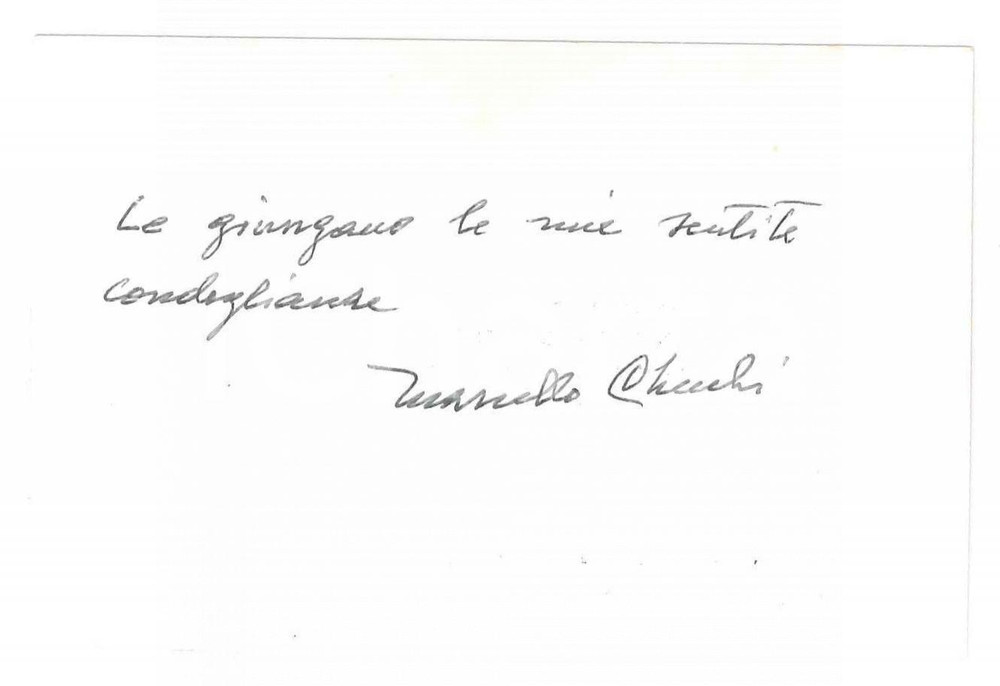 Le giungano le mie sentite
condoglianze
Marcello